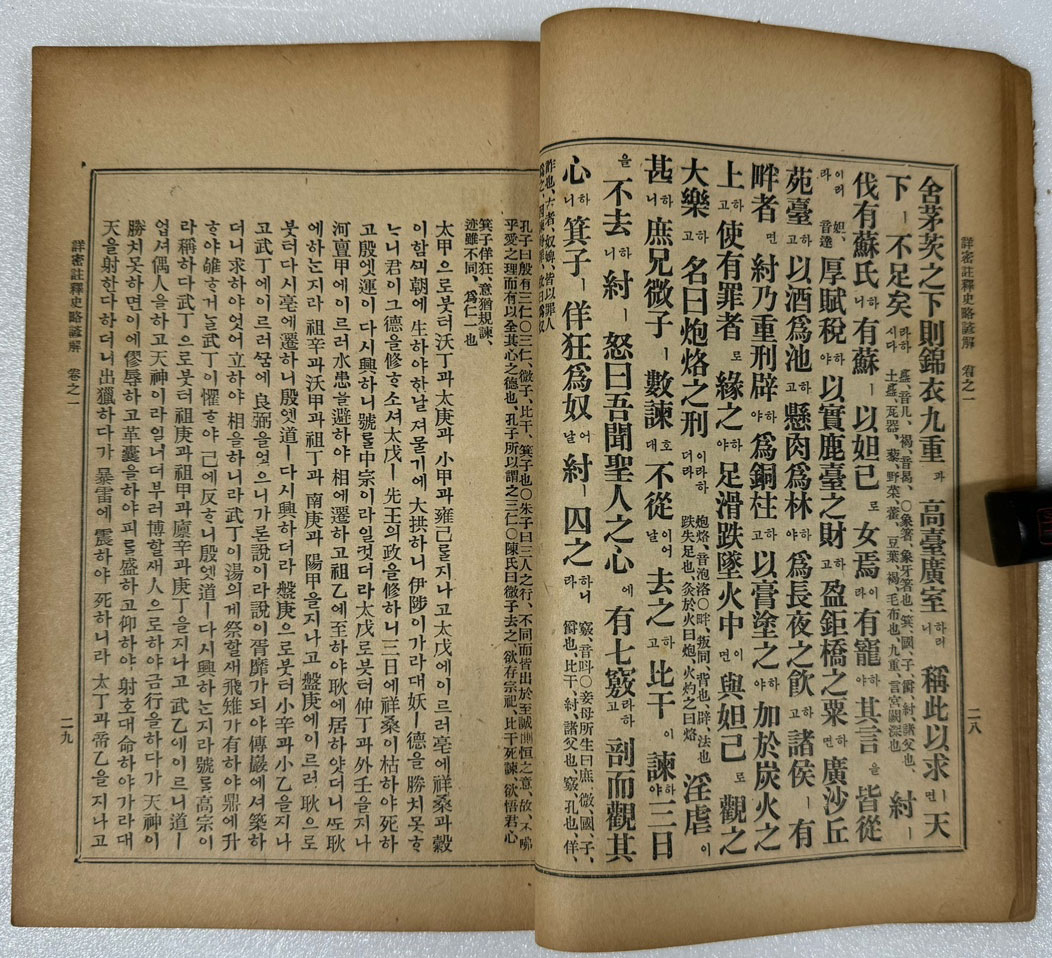 詳密註釋史略諺解 卷之一 二八
舍茅茨之下則錦衣九重과 高臺廣室하려니 稱此以求면 天
下ㅣ 不足矣라하시다 土簋、瓦器、藜、野菜、藿、豆葉、褐、毛布也、九重、言宮闕深也、 紂ㅣ
伐有蘇氏하니 有蘇ㅣ 以妲己로 女焉이라 有寵야 其言을 皆從
이러라 妲、音 厚賦稅하야 以實鹿臺之財고 盈鉅橋之粟하며 廣沙丘
苑臺하고 以酒爲池하고 懸肉爲林하야 爲長夜之飮하고 諸侯ㅣ 有
畔者면 紂乃重刑辟하야 爲銅柱하고 以膏塗之하야 加於炭火之
上하고 使有罪者로 緣之하야 足滑跌墜火中이면 與妲己로 觀之
大樂하고 名曰炮烙之刑이라하더라 炮烙、音泡洛○畔、叛同、背也、辟、法也、跌失足也、灸於火曰炮、火灼之曰烙 淫虐이
甚하니 庶兄微子ㅣ 數諫호대 不從이어날 去之고 比干이 諫三日하야
을 不去하니 紂ㅣ 怒曰吾聞聖人之心에 有七竅라하고 剖而觀其
心하니 箕子ㅣ 佯狂爲奴어날 紂ㅣ 囚之하니라 竅、音 ○妾母所生曰庶、微、國、子、爵也、比干、紂諸父也、竅、孔也、佯、
詐也、古者、奴婢、皆以罪人
孔子曰殷有三仁○三仁、微子、比干、箕子也○朱子曰三人之行、不同而皆出於至誠惻怛之意、故、不咈
乎愛之理而有以全其心之德也、孔子所以謂之三仁○陳氏曰微子去之、欲存宗祀、比干死諫、欲悟君心
箕子佯狂、意猶規諫、
迹雖不同、爲仁一也
太甲으로붓터沃丁과太庚과 小甲과雍己를지나고太戊에이르러亳에祥桑과穀
이함께朝에 生하야한날져물기에 大拱하니 伊陟이가라대妖ㅣ德을 勝치못ᄒ
ᄂ니君이그德을修ᄒ쇼셔太戊ㅣ先王의政을修하니三日에祥桑이枯하야死하
고殷엣運이다시興하니號를中宗이라일컷더라太戊로붓터仲丁과外壬을지나
河亶甲에이르러水患을避하야 相에遷하고祖乙에至하야耿에居하얏더니ᄯᅩ耿
에하ᄂᆞᆫ지라 祖辛과沃甲과祖丁과 南庚과陽甲을지나고盤庚에이르러 耿으로
붓터다시亳에遷하니殷엣道ㅣ다시興하더라 盤庚으로붓터小辛과小乙을지나
고武丁에이르러ᄭᅮᆷ에良弼을엇으니가론說이라說이胥靡가되야傅巖에셔築하
더니求하야엇어立하야 相을하니라武丁이湯의게祭할새飛雉가有하야鼎에升
ᄒ야雊ᄒ거ᄂᆞᆯ武丁이懼ᄒ야 己에反ᄒ니殷엣道ㅣ다시興하ᄂᆞᆫ지라號를高宗이
라稱하다武丁으로붓터祖庚과祖甲과廩辛과庚丁을지나고 武乙에이르니道ㅣ
업셔偶人을하고天神이라일너더부러博할새人으로하야금行을하다가 天神이
勝치못하면이에僇辱하고革囊을하야피를盛하고仰하야 射호대命하야가라대
天을射한다하더니出獵하다가 暴雷에 震하야 死하니라 太丁과帝乙을지나고
詳密註釋史略諺解 卷之一 二九